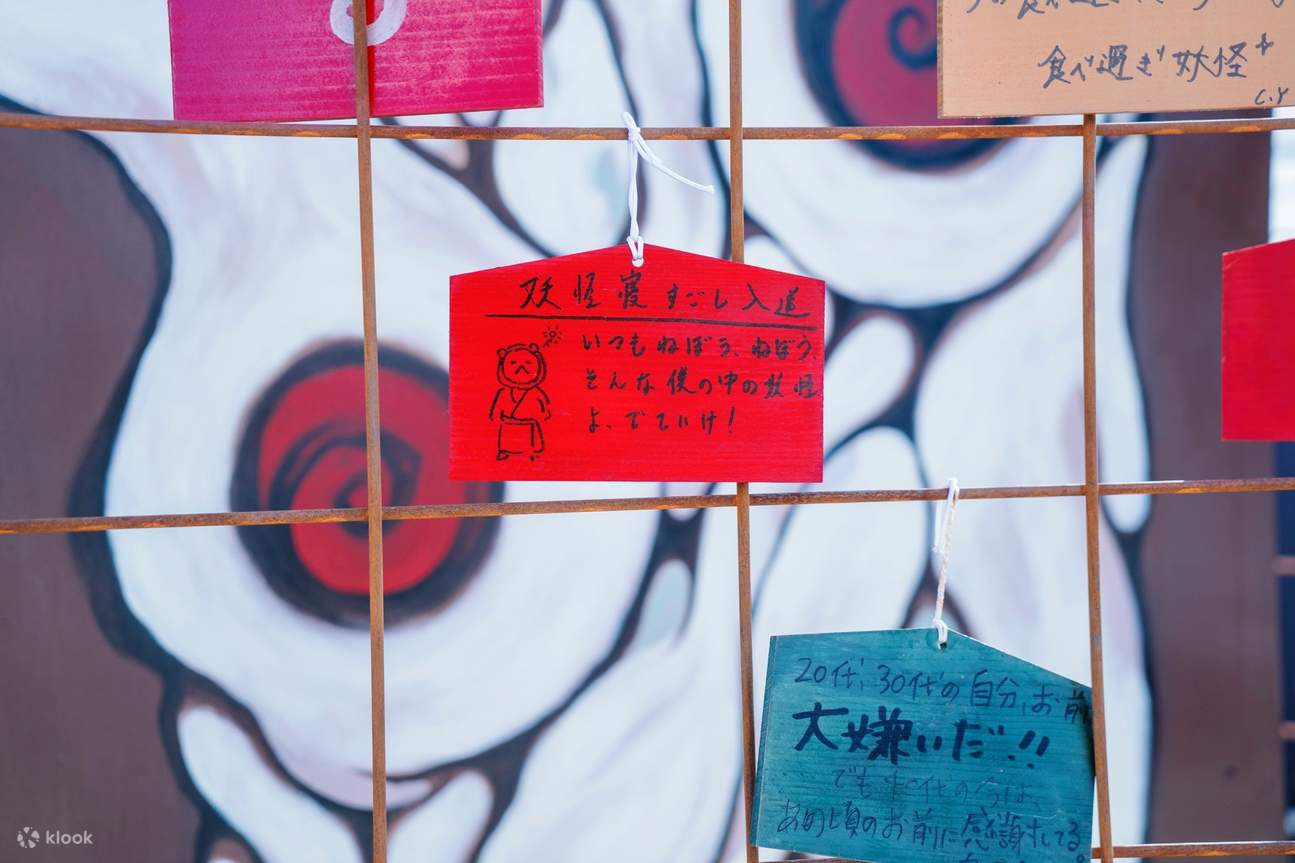 食べ過ぎ妖怪
C.Y
妖怪寝すごし入道
いつもねぼう、ねぼう、
そんな僕の中の妖怪
よ、でていけ！
20代、30代の自分、お前
大嫌いだ!!
でも 代の今は、
あの頃のお前に感謝してる
klook